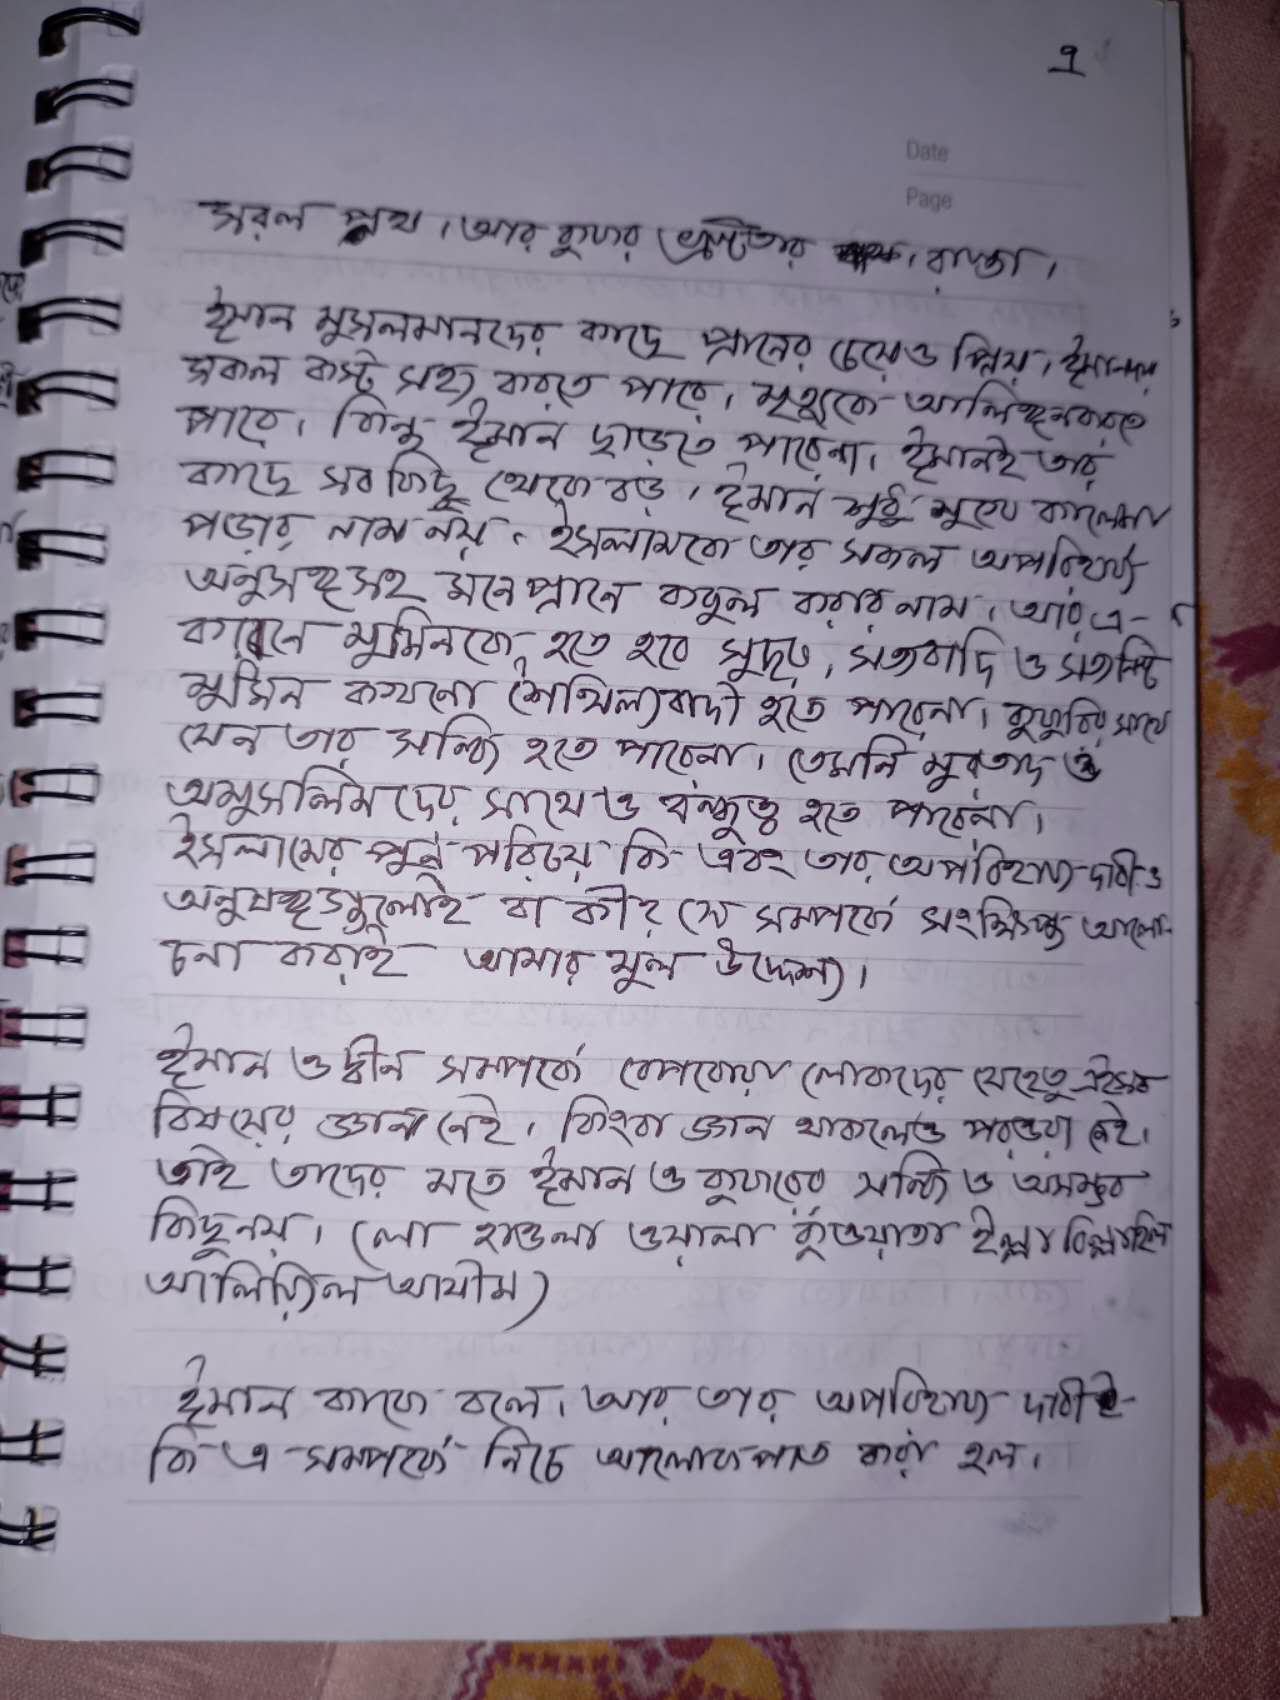 ৭
Date
Page
সরল পথ। আর কুফর ভ্রষ্টতার রাস্তা।
ঈমান মুসলমানদের কাছে প্রানের চেয়েও প্রিয়। ঈমানদার
সকল কস্ট সহ্য করতে পারে। মৃত্যুকে আলিঙ্গনকরতে
পারে। কিন্তু ঈমান ছাড়তে পারেনা। ঈমানই তার
কাছে সব কিছু থেকে বড়। ঈমান শুধু মুখে কালেমা
পড়ার নাম নয়। ইসলামকে তার সকল অপরিহার্য্য
অনুসঙ্গ সহ মনে প্রানে কবুল করার নাম। আর এ-
কারনে মুমিনকে হতে হবে সুদৃঢ়, সত্যবাদি ও সত্যনিষ্ট
মুমিন কখনো শৈথিল্যবাদী হতে পারেনা। কুফুরির সাথে
যেন তার সন্ধি হতে পারেনা। তেমনি মুরতাদ ও
অমুসলিমদের সাথে ও বন্ধুত্ব হতে পারেনা।
ইসলামের পুর্ন পরিচয় কি এবং তার অপরিহার্য্য দাবী ও
অনুষঙ্গগুলোই বা কী? সে সমপর্কে সংক্ষিপ্ত আলো-
চনা করাই আমার মুল উদ্দেশ্য।
ঈমান ও দ্বীন সমপর্কে বেপরোয়া লোকদের যেহেতু এইসব
বিষয়ের জ্ঞান নেই। কিংবা জ্ঞান থাকলেও পরওয়া নেই।
তাই তাদের মতে ঈমান ও কুফরের সন্ধি ও অসম্ভব
কিছু নয়। (লা হাওলা ওয়ালা কুওয়াতা ইল্লা বিল্লাহিল
আলিয়্যিল আযীম)
ঈমান কাকে বলে। আর তার অপরিহার্য্য দাবী
কি এ সমপর্কে নিচে আলোকপাত করা হল।